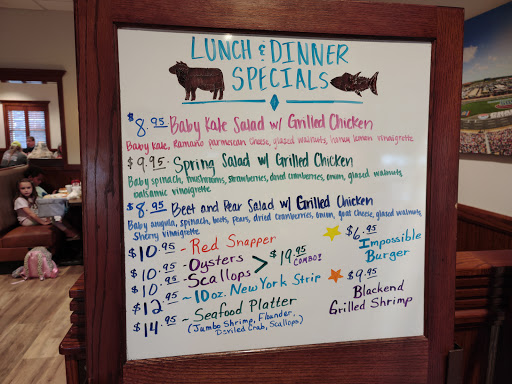 LUNCH & DINNER
SPECIALS
$8.95 Baby Kale Salad w/ Grilled Chicken
Baby Kale, Romano parmesean cheese, glazed walnuts, honey lemon vinaigrette
$9.95 - Spring Salad w/ Grilled Chicken
Baby spinach, mushrooms, strawberries, dried cranberries, onion, glazed walnuts,
balsamic vinaigrette
$8.95 Beet and Pear Salad w/ Grilled Chicken
Baby arugula, spinach, beets, pears, dried cranberries, onion, goat cheese, glazed walnuts,
Sherry vinaigrette
$10.95 - Red Snapper
$10.95 - Oysters
$10.95 - Scallops > $19.95 COMBO!
$12.95 ~ 10oz. New York Strip
$14.95 ~ Seafood Platter
(Jumbo Shrimp, Flounder,
Deviled Crab, Scallops)
$6.95
Impossible
Burger
$9.95
Blackend
Grilled Shrimp